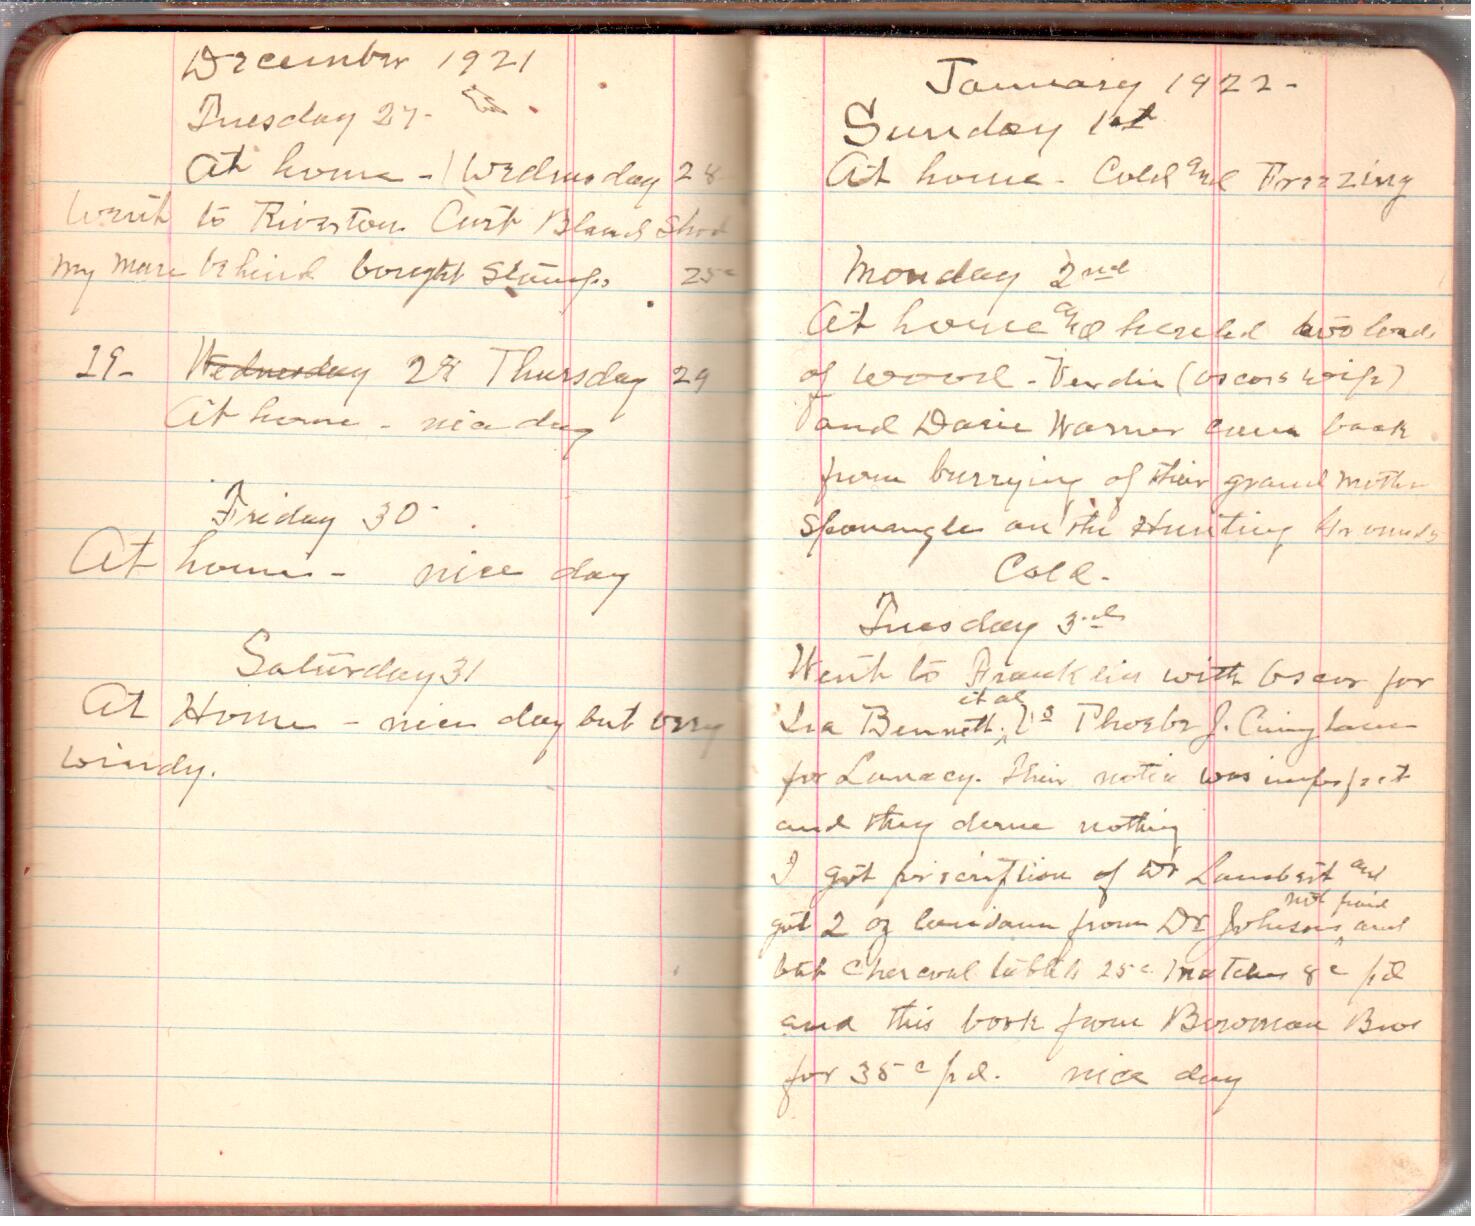 December 1921
Tuesday 27-
At home - | Wednesday 28
Went to Riverton Curt Bland Shod
my mare behind bought Stamps 25c
29- Wednesday 28 Thursday 29
At home - nice day
Friday 30-
At home - nice day
Saturday 31
At Home - nice day but very
windy.
January 1922-
Sunday 1st
At home - Cold and Freezing
Monday 2nd
At home and hauled two loads
of wood - Verdie (Oscars wife)
and Dasie Warner came back
from burrying of their grand mother
Sponaugle on the Hunting Grounds
Cold.
Tuesday 3rd
Went to Franklin with Oscar for
Ira Bennett et al Vs Phoebe J. Cuningham
for Lunacy. Their notice was imperfect
and they done nothing
I got perscription of Dr Lambert and
got 2 oz laudanum from Dr Johnson not paid and
but Charcoal tablets 25c matches 8c pd
and this book from Bowman Bros
for 35c pd. nice day